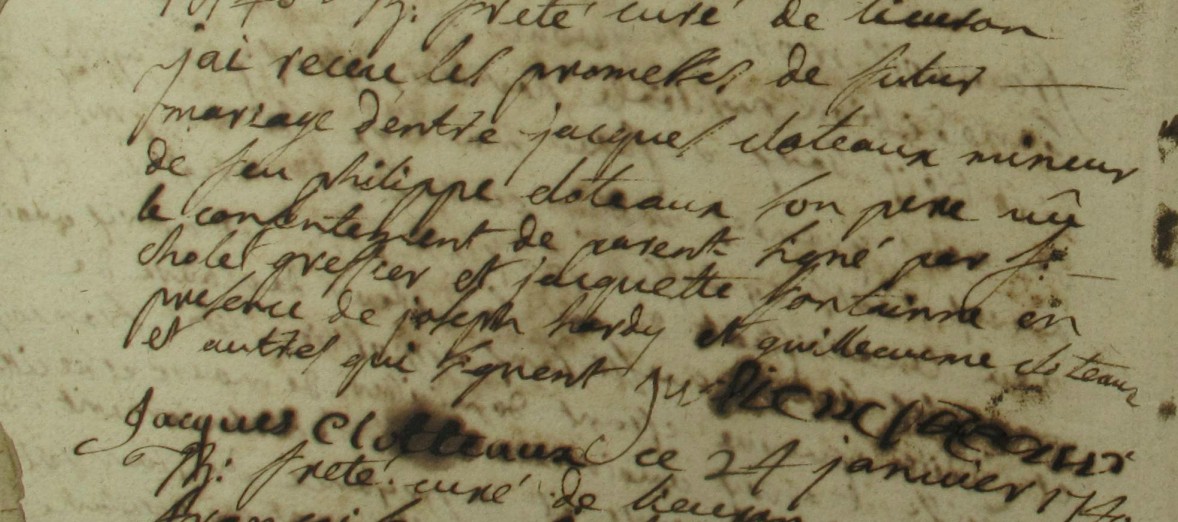 frété curé de lieuron
j'ai receu les promesses de futur
mariage d'entre jacques cloteaux mineur
de feu philippe cloteaux son pere vû
le consentement de parents signé par
cholet greffier et jacquette fontainne en
presence de joseph hardy et guilleaume cloteaux
et autres qui signent
Jacques Clotteaux ce 24 janvier
frété curé de lieuron